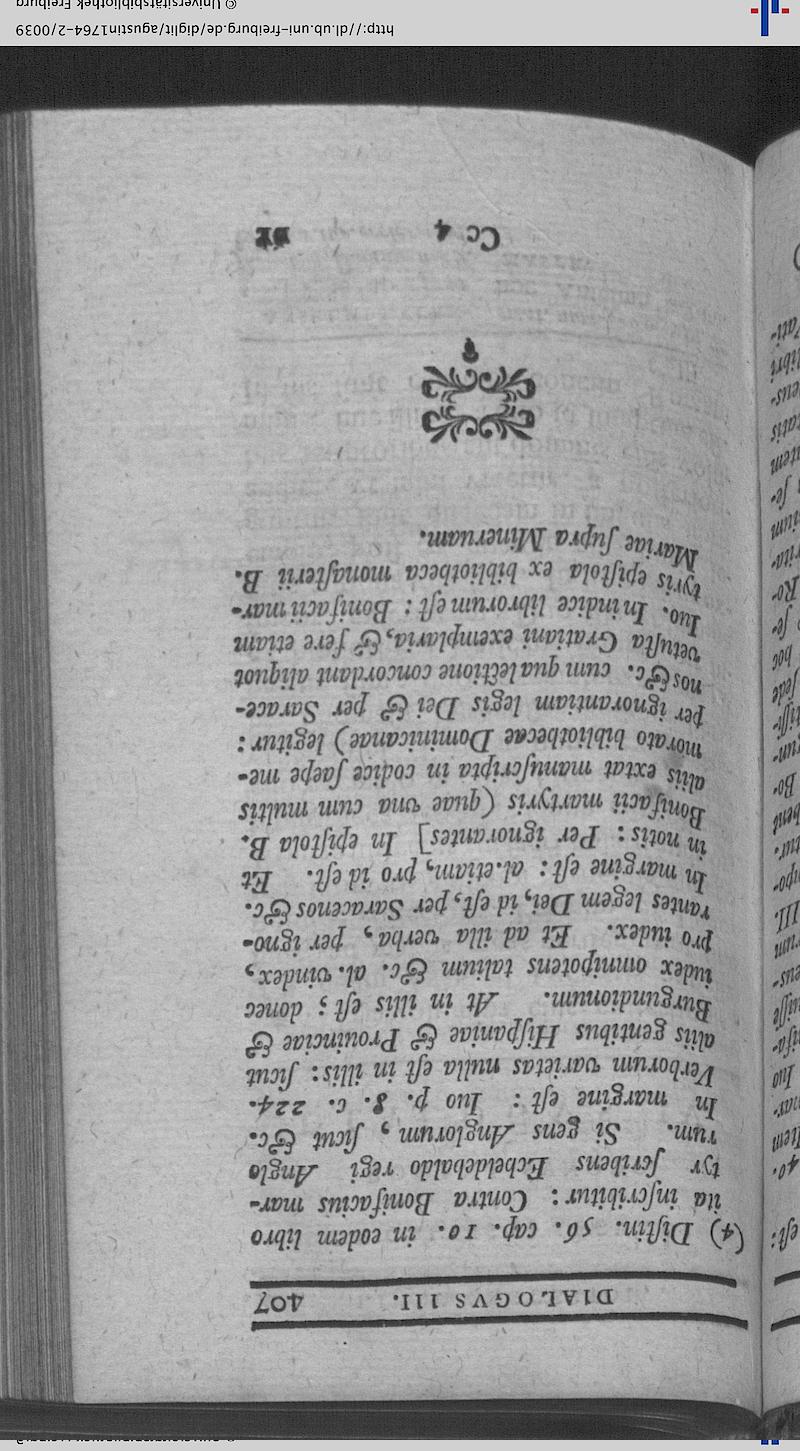 DIALOGVS III. 407
(4) Distin. 56. cap. 10. in eodem libro
ita inscribitur: Contra Bonifacius mar-
tyr scribens Echeldebaldo regi Anglo
rum. Si gens Anglorum, sicut &c.
In margine est: Iuo p. 8. c. 224.
Verborum varietas nulla est in illis: sicut
aliis gentibus Hispaniae & Prouinciae &
Burgundionum. At in illis est; donec
iudex omnipotens talium &c. al. vindex,
pro iudex. Et ad illa verba, per igno-
rantes legem Dei, id est, per Saracenos &c.
In margine est: al. etiam, pro id est. Et
in notis: Per ignorantes] In epistola B.
Bonifacii martyris (quae vna cum multis
aliis extat manuscripta in codice saepe me-
morato bibliothecae Dominicanae) legitur:
per ignorantiam legis Dei & per Sarace-
nos &c. cum qua lectione concordant aliquot
vetusta Gratiani exemplaria, & fere etiam
Iuo. In indice librorum est: Bonifacii mar-
tyris epistola ex bibliotheca monasterii B.
Mariae supra Mineruam.
Cc 4 DE
http://dl.ub.uni-freiburg.de/diglit/augustin1764-2/0039
© Universitätsbibliothek Freiburg